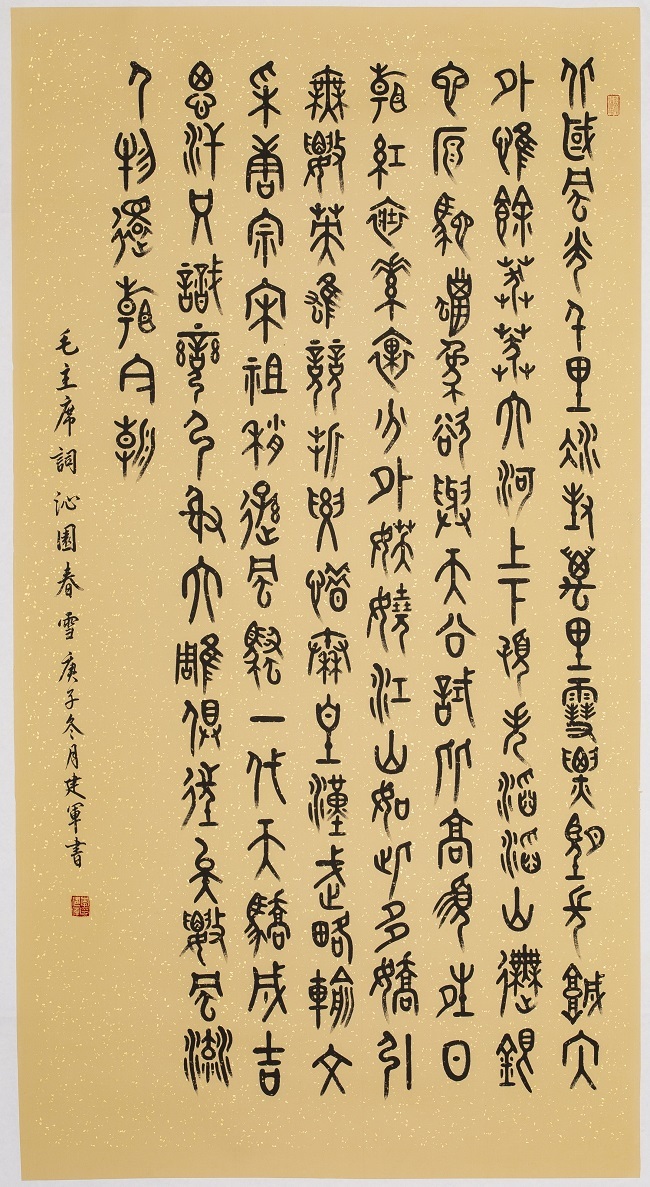 北國風光千里冰封萬里雪飄望長城内
外惟餘莽莽大河上下頓失滔滔山舞銀
蛇原馳蠟象欲與天公試比高須晴日
看紅裝素裹分外妖嬈江山如此多嬌引
無數英雄競折腰惜秦皇漢武略輸文
采唐宗宋祖稍遜風騷一代天驕成吉
思汗只識彎弓射大雕俱往矣數風流
人物還看今朝
毛主席詞沁園春雪庚子冬月建軍書